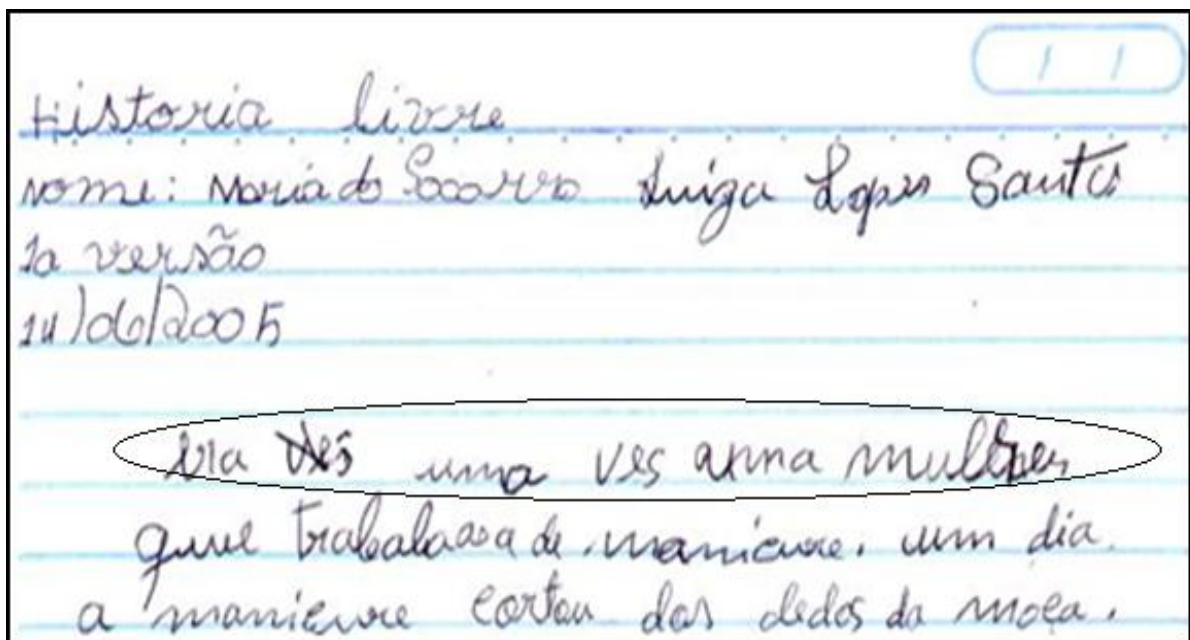 Historia livre
nome: Maria do Socorro Luiza Lopes Santos
1a versão
14/06/2005
Era uma ves uma mulher
que trabalava de manicure. um dia
a manicure cortou dos dedos da moça.